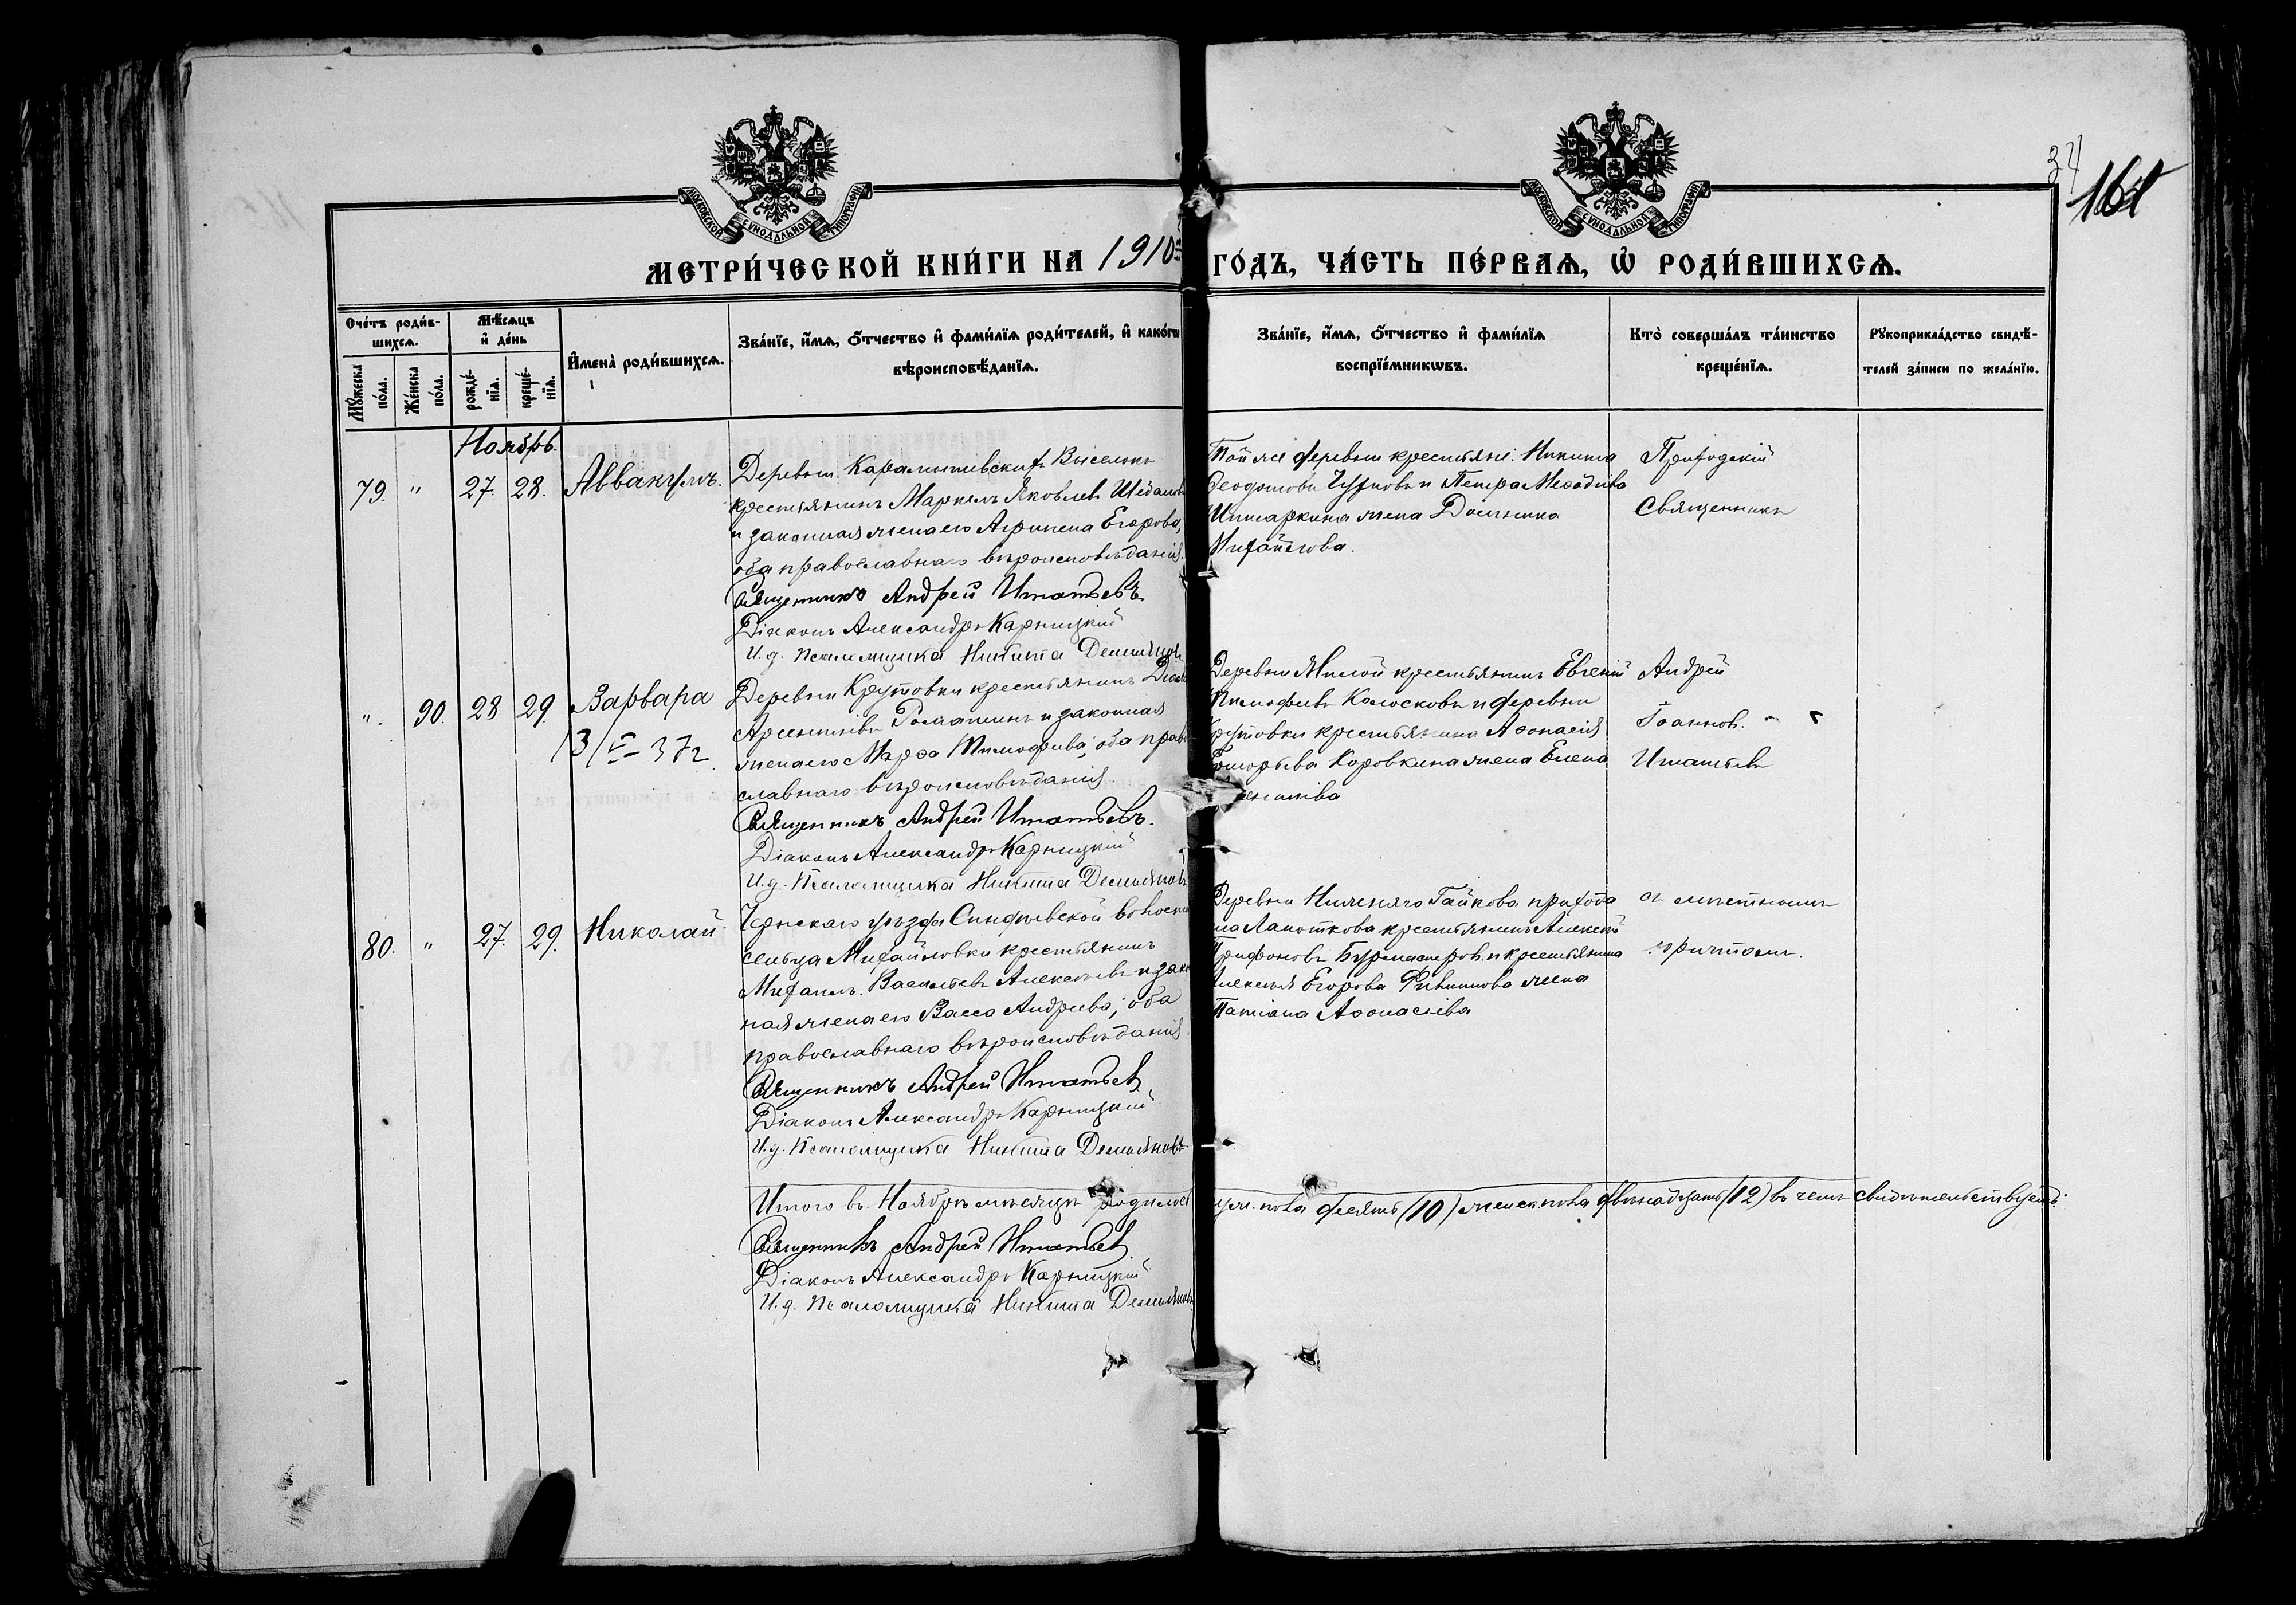 34
161
МОСКОВСКОЙ СѴНОДАЛЬНОЙ ТИПОГРАФІИ
МОСКОВСКОЙ СѴНОДАЛЬНОЙ ТИПОГРАФІИ
МЕТРИ́ЧЕСКОЙ КНИ́ГИ НА 1910 ГО́ДЪ, ЧА́СТЬ ПЕ́РВАѦ, Ѡ҆ РОДИ́ВШИХСѦ.
Сче́тъ роди́в-
шихсѧ.
Мꙋ́жеска по́ла.
Же́нска по́ла.
Мѣ́сѧцъ
и҆ де́нь
рожде́-
нїѧ.
креще́-
нїѧ.
И҆мена̀ роди́вшихсѧ.
Зва́нїе, и҆́мѧ, ѻ҆́тчество и҆ фами́лїѧ роди́телей, и҆ како́гѡ
вѣроисповѣ́данїѧ.
Зва́нїе, и҆́мѧ, ѻ҆́тчество и҆ фами́лїѧ
воспрїе́мникѡвъ.
Кто̀ соверша́лъ та́инство
креще́нїѧ.
Рꙋкоприкла́дство свидѣ́-
телей за́писи по жела́нїю.
Ноябрь.
79. " 27. 28. Аввакумъ.
Деревни Выселокъ
крестьянинъ Маркелъ Яковлевъ
и законная жена его Агрипена Егорова,
оба православнаго вѣроисповѣданія.
Священникъ Андрей Игнатьевъ.
Діаконъ Александръ Карницкій
И.д. Псаломщика Никита Демьяновъ
Той же деревни крестьяне: Никита
Ѳеодотовъ и Петра Меѳодіева
жена Домника
Приходскій
Священникъ
". 90. 28 29. Варвара
3/V–37г.
Деревни Крутовки крестьянинъ
Арсентіевъ Ромашинъ и законная
жена его Марѳа Тимофеева; оба право
славнаго вѣроисповѣданія.
Священникъ Андрей Игнатьевъ.
Діаконъ Александръ Карницкій
И.д. Псаломщика Никита Демьяновъ
Деревни крестьянинъ Евгеній
Тимофеевъ Колосковъ и деревни
Крутовки крестьянина Аѳонасія
Григорьева Коровкина жена Елена
Андрей
Іоаннов.
Игнатьевъ
80. " 27. 29. Николай.
Чернскаго уѣзда волости
сельца Михайловки крестьянинъ
Михаилъ Васильевъ Алексѣевъ и закон
ная жена его Васса Андреева; оба
православнаго вѣроисповѣданія.
Священникъ Андрей Игнатьев
Діаконъ Александръ Карницкій
И.д. Псаломщика Никита Демьяновъ
Деревни Гайкова прихода
села Лапоткова крестьянинъ Алексѣй
Трифоновъ Бурмистров. и крестьянина
Алексѣя Егорова жена
Татіана Аѳонасіева
съ мѣстнымъ
причтомъ.
Итого въ Ноябрѣ мѣсяцѣ родилось муж. пола десять (10) женск. пола двѣнадцать (12) въ чемъ свидѣтельствуемъ:
Священникъ Андрей Игнатьев
Діаконъ Александръ Карницкій
И.д. Псаломщика Никита Демьяновъ